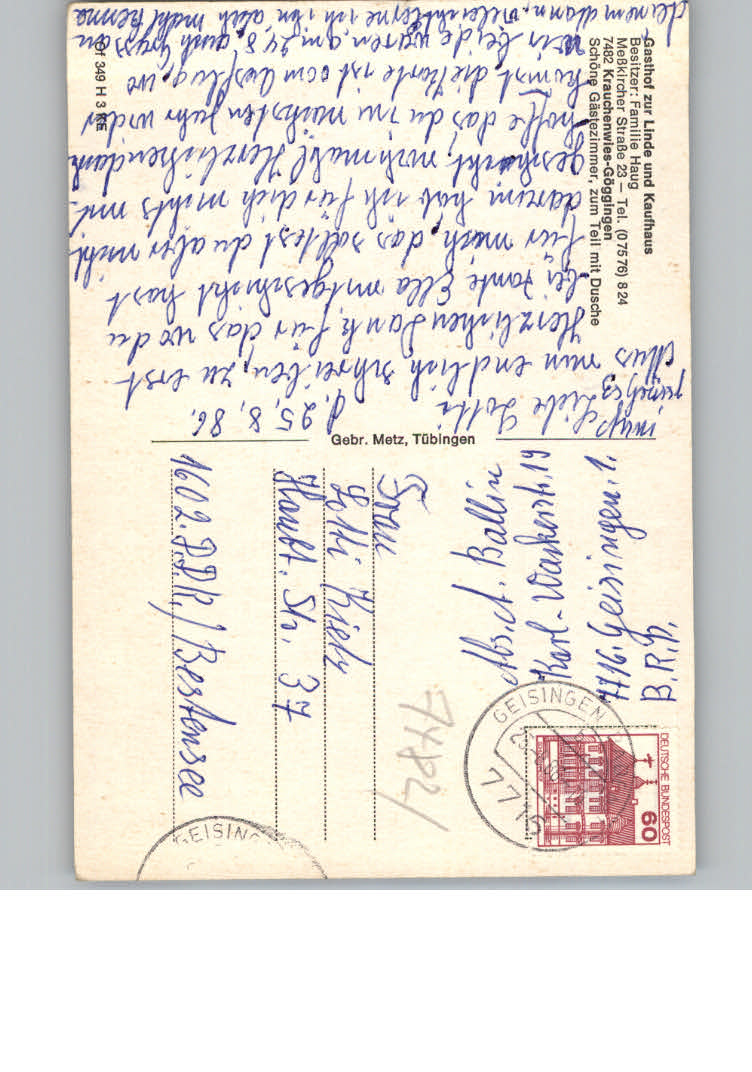 Gasthof zur Linde und Kaufhaus
Besitzer: Familie Haug
Meßkircher Straße 23 – Tel. (07576) 824
7482 Krauchenwies-Göggingen
Schöne Gästezimmer, zum Teil mit Dusche
Of 349 H 3 KE
Gebr. Metz, Tübingen
d. 25.8.86.
Liebe Lotti
Mus nun endlich schreiben, zu erst
Herzlichen Dank für das wo du
bei Tante Ella mitgeschickt hast
für mich, das solltest du aber nicht
darum hab ich für dich nichts mit
geschickt, nochmahl Herzlichen dank
hoffe das du im nächsten Jahr wider
komst die Karte ist vom Ausflug, wo
wir beide waren, am 24.8. auch Gruss an
deinem Mann, vieleicht lerne ich ihn auch mahl kenne
Abs. A. Ballin
Karl-
7716. Geisingen. 1.
B.R.D.
Frau
Lotti Kielz
Haupt. Str. 37
1602. D.D.R./Bestensee
7482
DEUTSCHE BUNDESPOST
60
GEISINGEN
7716
GEISING